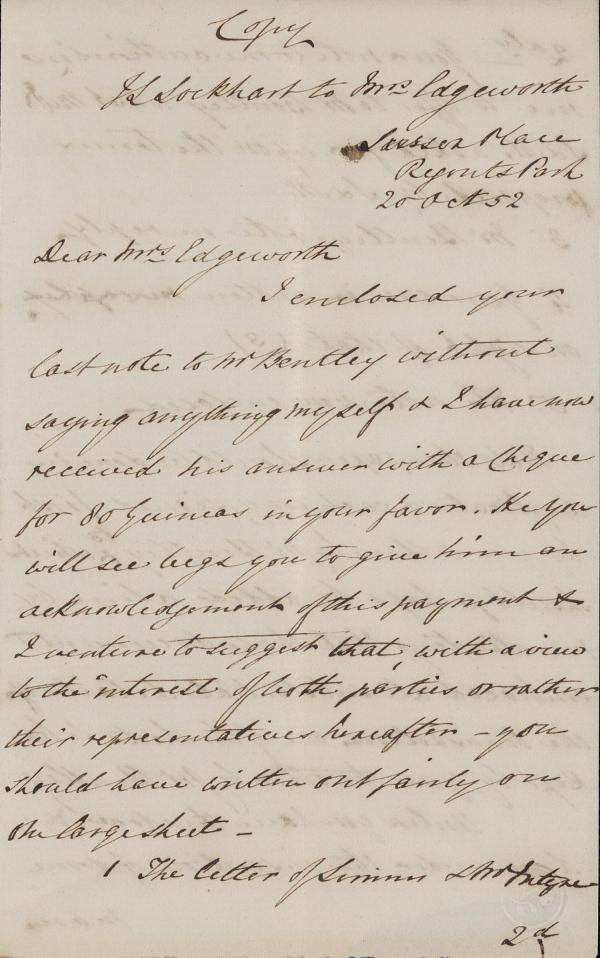 Copy
JL Lockhart to Mrs Edgeworth
Sussex Place
Regents Park
20 Oct 52
Dear Mrs Edgeworth
I enclosed your
last note to Mr Bentley without
saying anything myself & I have now
received his answer with a Cheque
for 80 Guineas in your favor. He you
will see begs you to give him an
acknowledgement of this payment &
I venture to suggest that, with a view
to the interest of both parties or rather
their representatives hereafter - you
should have written out fairly on
one large sheet -
1 The letter of Simms & McIntyre
2d